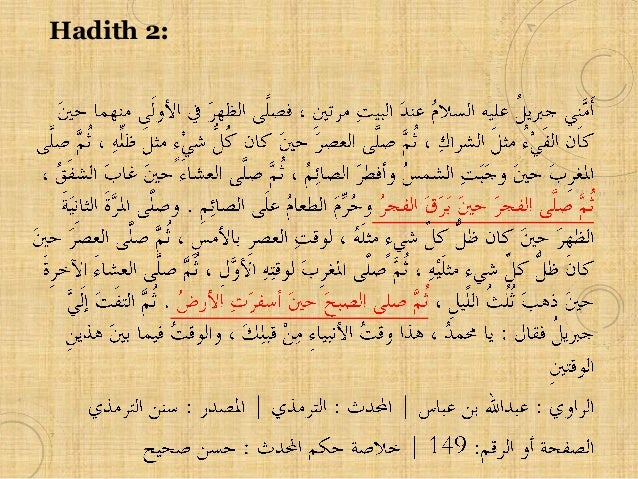 Hadith 2:
أَمَّني جبريلُ عليه السلامُ عندَ البيتِ مرتينِ ، فصلَّى الظهرَ في الأولَى منهما حينَ
كان الفَيْءُ مثلَ الشراكِ ، ثُمَّ صلَّى العصرَ حينَ كان كُلُّ شيْءٍ مثلَ ظلِّهِ ، ثُمَّ صلَّى
المغربَ حينَ وجَبَتِ الشمسُ وأفطرَ الصائِمُ ، ثُمَّ صلَّى العشاءَ حينَ غابَ الشفَقُ ،
ثُمَّ صلَّى الفجرَ حينَ بَرَقَ الفجرُ وحُرِّمَ الطعامُ علَى الصائِمِ . وصلَّى المرَّةَ الثانِيَةَ
الظهرَ حينَ كان ظلُّ كلِّ شيءٍ مثلَهُ ، لوقتِ العصرِ بالأمسِ ، ثُمَّ صلَّى العصرَ حينَ
كانَ ظلُّ كلِّ شيء مثلَيْهِ ، ثُمَّ صلَّى المغرِبَ لوقتِهِ الأوَّلِ ، ثُمَّ صلَّى العشاءَ الآخِرةَ
حينَ ذهبَ ثُلُثُ اللَّيلِ ، ثُمَّ صلى الصبحَ حينَ أسفرَتِ الأرضُ . ثُمَّ التفَتَ إلَيَّ
جبريلُ فقال : يا محمدُ ، هذا وقتُ الأنبياءِ مِنْ قبلِكَ ، والوقتُ فيما بينَ هذينِ
الوقتينِ
الراوي : عبدالله بن عباس | المحدث : الترمذي | المصدر : سنن الترمذي
الصفحة أو الرقم: 149 | خلاصة حكم المحدث : حسن صحيح